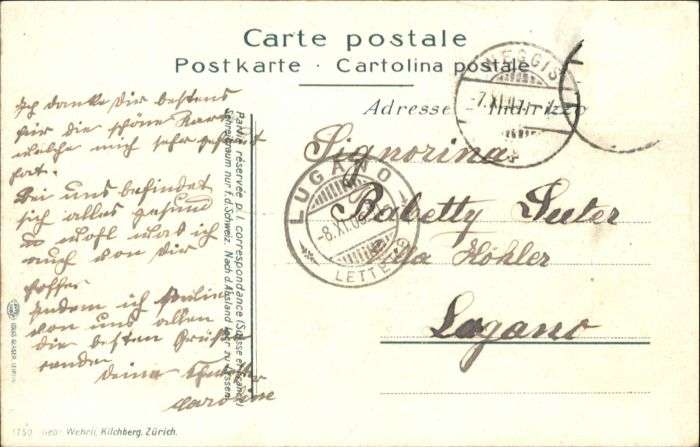 Carte postale
Postkarte · Cartolina postale
Adresse Indirizzo
WEGGIS
-7.XI.
LUGANO
-8.XI.06
LETTERE
Signorina
Babetty Suter
Villa Köhler
Lugano
Ich danke Dir bestens
für die schöne Karte
welche mich sehr gefreut
hat.
Bei uns befindet
sich alles gesund
u wohl was ich
auch von Dir
hoffe.
Indem ich
von uns allen
die besten Grüße
sende
deine Schwester
Caroline
Partie réservée p. l. correspondance (Suisse et
Schreibraum nur f. d. Schweiz. Nach d. Ausland leer zu lassen.
Gebr. Wehrli, Kilchberg, Zürich.